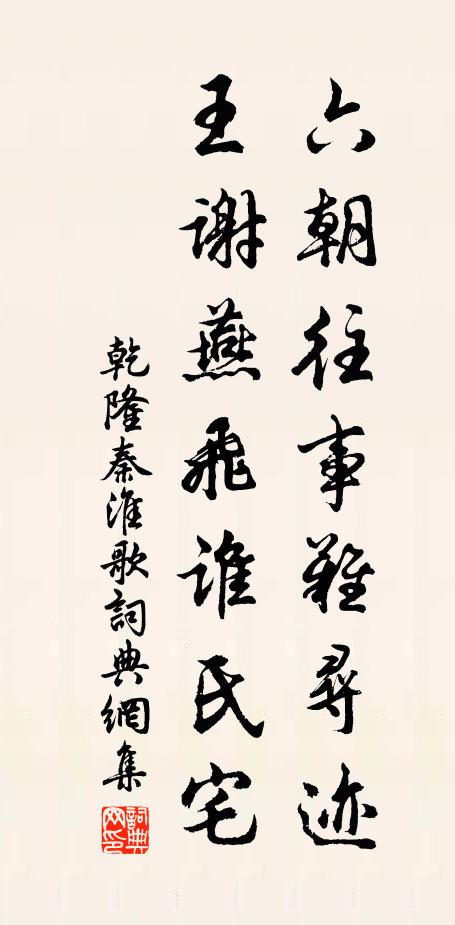 六朝往事難尋迹
王謝燕飛誰氏宅
乾隆秦淮歌詞典網集
詞典網印